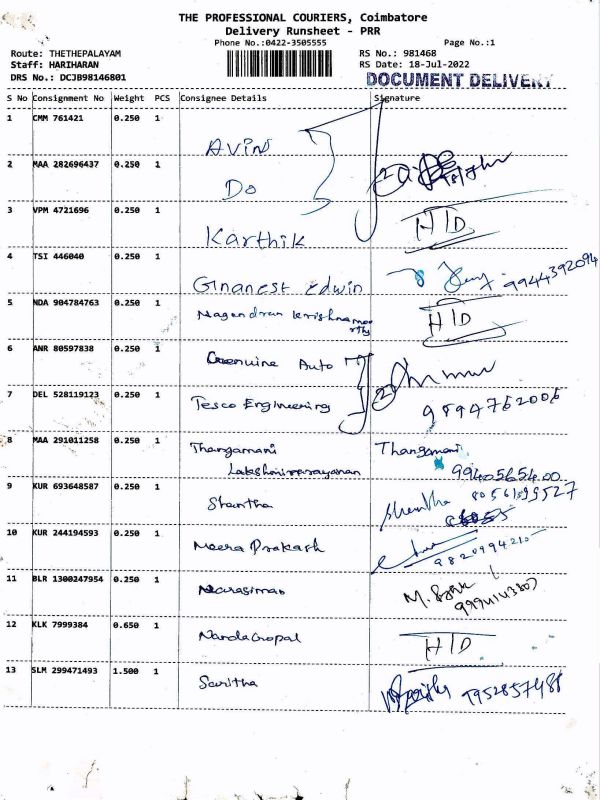 THE PROFESSIONAL COURIERS, Coimbatore
Delivery Runsheet - PRR
Phone No.:0422-3505555 Page No.:1
Route: THETHEPALAYAM RS No.: 981468
Staff: HARIHARAN RS Date: 18-Jul-2022
DRS No.: DCJB98146801 DOCUMENT DELIVERY
S No Consignment No Weight PCS Consignee Details Signature
1 CMM 761421 0.250 1
AVIN
2 MAA 282696437 0.250 1
Do
3 VPM 4721696 0.250 1
Karthik H/D
4 TSI 446040 0.250 1
Gnanest Edwin 9944392094
5 NDA 904784763 0.250 1
Nagendran Krishnamoo
rthy H/D
6 ANR 80597838 0.250 1
Genuine Auto
7 DEL 528119123 0.250 1
Tesco Engineering 9894762006
8 MAA 291011258 0.250 1
Thangamani Thangamani
Lakshminarayanan 9940565400
9 KUR 693648587 0.250 1
Shantha Shantha 8056199527
10 KUR 244194593 0.250 1
Meera Prakash 9820994210
11 BLR 1300247954 0.250 1
Narasiman
12 KLK 7999384 0.650 1
NandaGopal H/D
13 SLM 299471493 1.500 1
Saritha 9952857488